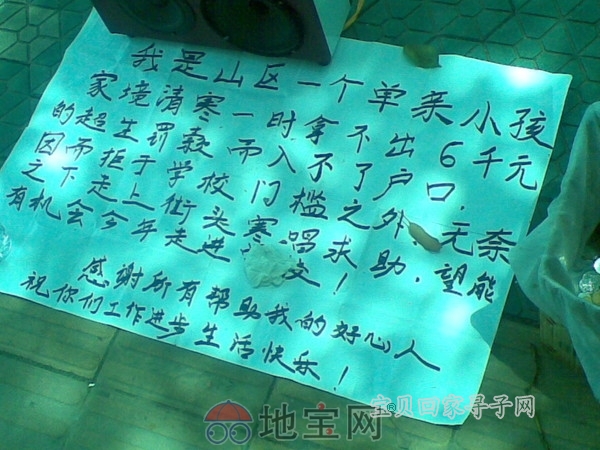 我是山区一个单亲小孩
家境清寒一时拿不出6千元
的超生罚款而入不了户口，
因而拒于学校门槛之外，无奈
之下走上街头唱求助，望能
有机会今年走进校！
感谢所有帮助我的好心人
祝你们工作进步生活快乐！
地宝网
宝贝回家寻子网